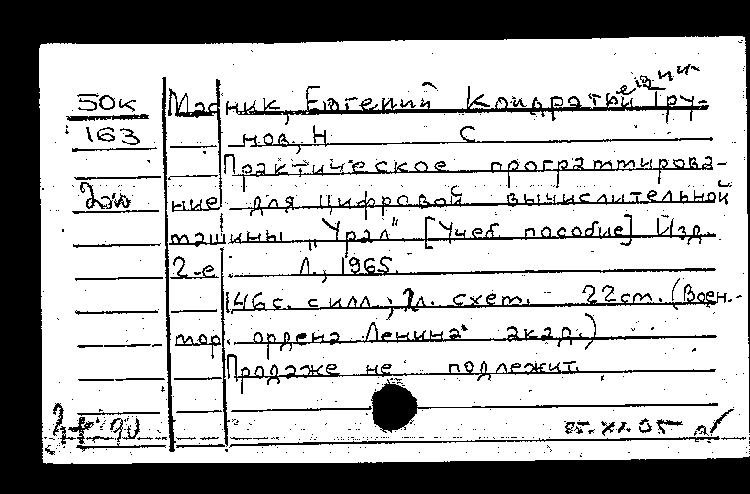 50к Масник, Евгений Кондратьевич Тру-
163 нов, Н С
Практическое программирова-
2эк ние для цифровой вычислительной
машины „Урал“. [Учеб. пособие] Изд.
2-е Л., 1965.
146 с. с илл.; 1 л. схем. 22 см. (Воен.-
мор. ордена Ленина акад.)
Продаже не подлежит.
90